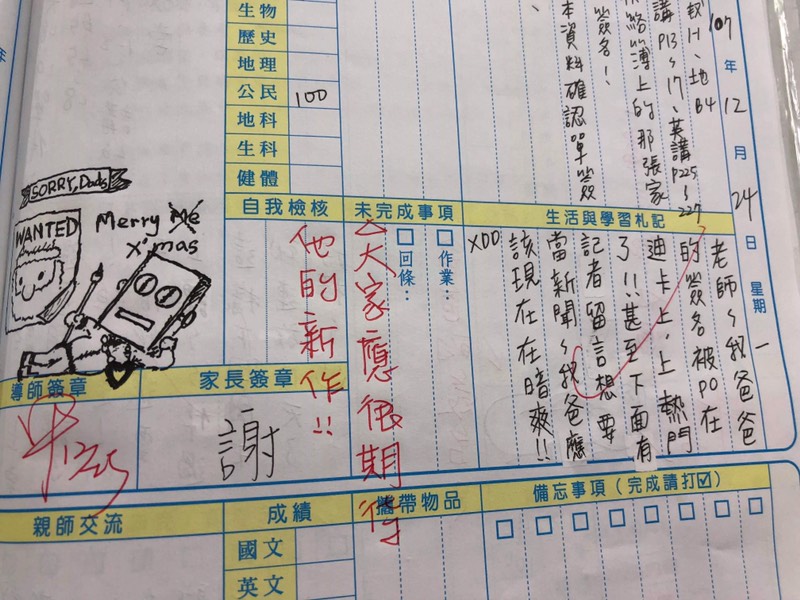 107年12月24日 星期一
數H、地B4
講P13~17、英講P225~227
絡簿上的那張家
簽名!
本資料確認單簽
生物
歷史
地理
公民 100
地科
生科
健體
自我檢核
未完成事項
作業:
回條:
生活與學習札記
老師~我爸爸
的簽名被PO在
迪卡上,上熱門
了!!甚至下面有
記者留言想要
當新聞~我爸應
該現在在暗爽!!
XDD
△大家應很期待
他的新作!!
SORRY, Dads
WANTED
Merry Me
X'mas
導師簽章
12/25
家長簽章
謝
親師交流
成績
國文
英文
攜帶物品
備忘事項(完成請打☑)